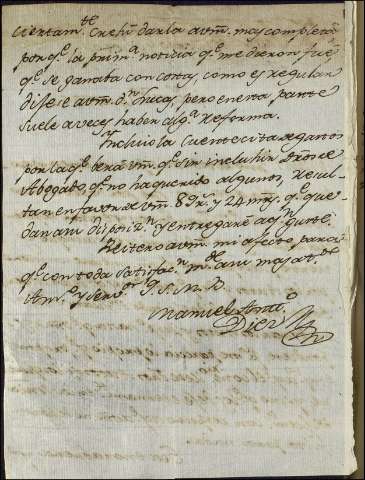 Ciertam.te Crehi darla a vm. mas completa
porq.e la prim.a noticia q.e me dieron fue,
q.e se ganaba con costas, como es regular
dijese a vm. d.n Lucas, pero en esta parte
suele a veces haber alg.a reforma.
Incluio la Cuentecita de gastos
por la q.e verá vm. q.e sin incluhir dros de
Abogado, q.e no ha querido algunos, resul-
tan en favor de vm. 89 r.s y 24 mrs. q.e que-
dan a su dispoz.n y entregaré a q.n guste.
Reitero a vm. mi afecto, para
q.e con toda satisfac.n m.de a su mas at.to
Am.o y Serv.r Q. S. M. B.
Manuel Anto.
Diez